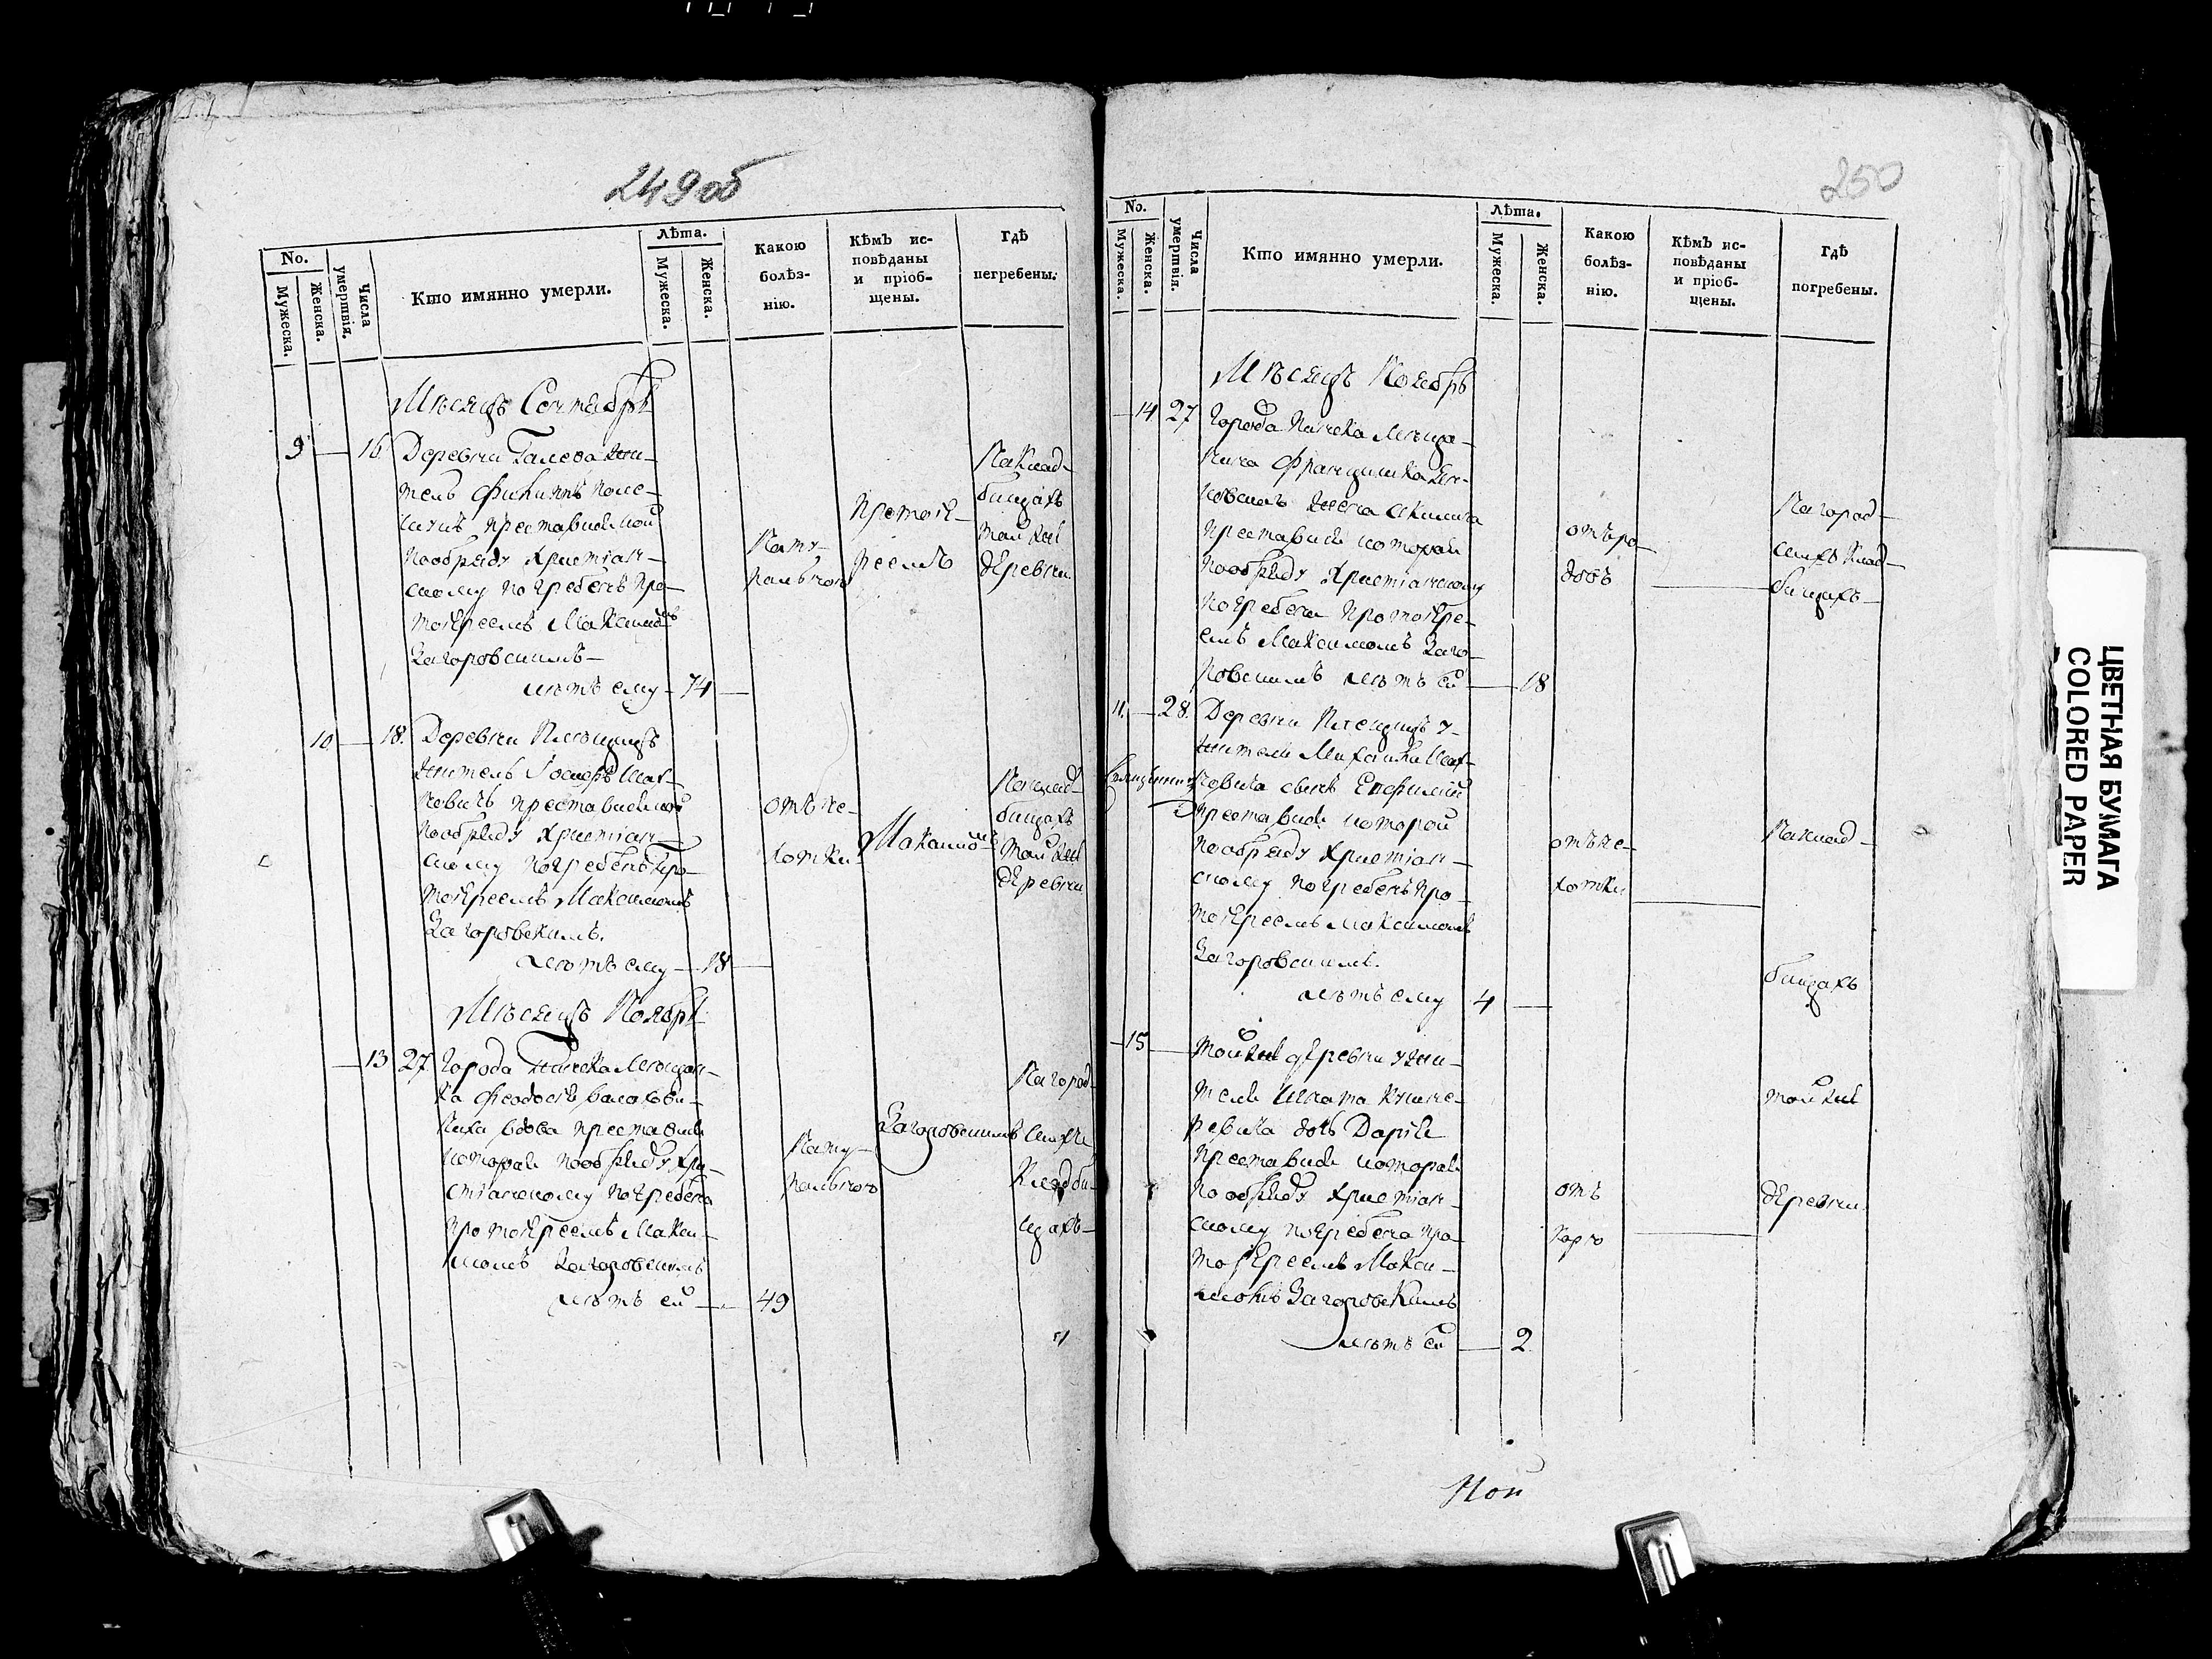 249 об
No.
Мужеска.
Женска.
Числа умертвія.
Кто имянно умерли.
Лѣта.
Мужеска.
Женска.
Какою болѣз-
нію.
Кѣмъ ис-
повѣданы
и пріоб-
щены.
Гдѣ
погребены.
Мѣсяцъ Сентябрь
9 — 16 Деревни Галева жи-
тель Филиппъ
преставися кой
по обряду христіан-
скому погребенъ про-
тоіереемъ Максимомъ
Загоровскимъ —
лѣтъ ему — 74 —
Нату-
ральною
Протоіе-
реемъ
На клад-
бищахъ
той же
деревни
10 — 18. Деревни
житель
преставися кой
по обряду христіан-
скому погребенъ про-
тоіереемъ Максимомъ
Загоровскимъ.
лѣтъ ему — 18 —
отъ че-
хотки
Максимомъ
На клад-
бищахъ
той же
деревни
Мѣсяцъ Ноябрь
— 13 27 Города Пинска мещан-
ка Феодосія
вдова преставися
которая по обряду хри-
стіанскому погребена
протоіереемъ Макси-
момъ Загоровскимъ
лѣтъ ей — 49
Нату-
ральною
Загоровскимъ
На город-
скихъ
кладби-
щахъ —
250
No.
Мужеска.
Женска.
Числа умертвія.
Кто имянно умерли.
Лѣта.
Мужеска.
Женска.
Какою
болѣз-
нію.
Кѣмъ ис-
повѣданы
и пріоб-
щены.
Гдѣ
погребены.
Мѣсяцъ Ноябрь
— 14 27 Города Пинска меща-
нина Францишка
жена Акилина
преставися которая
по обряду христіанскому
погребена протоіере-
емъ Максимомъ Заго-
ровскимъ лѣтъ ей — 18
отъ ро-
довъ
На город-
скихъ клад-
бищахъ —
11. — 28. Деревни
жителя Михаила
сынъ
преставися которой
по обряду христіан-
скому погребенъ про-
тоіереемъ Максимомъ
Загоровскимъ.
лѣтъ ему 4 —
отъ че-
хотки
На клад-
бищахъ
— 15 — той же деревни жи-
теля Игната
дочь Дарія
преставися которая
по обряду христіан-
скому погребена про-
тоіереемъ Макси-
момъ Загоровскимъ
лѣтъ ей — 2
отъ
корю
той же
деревни.
Кой
ЦВЕТНАЯ БУМАГА
COLORED PAPER